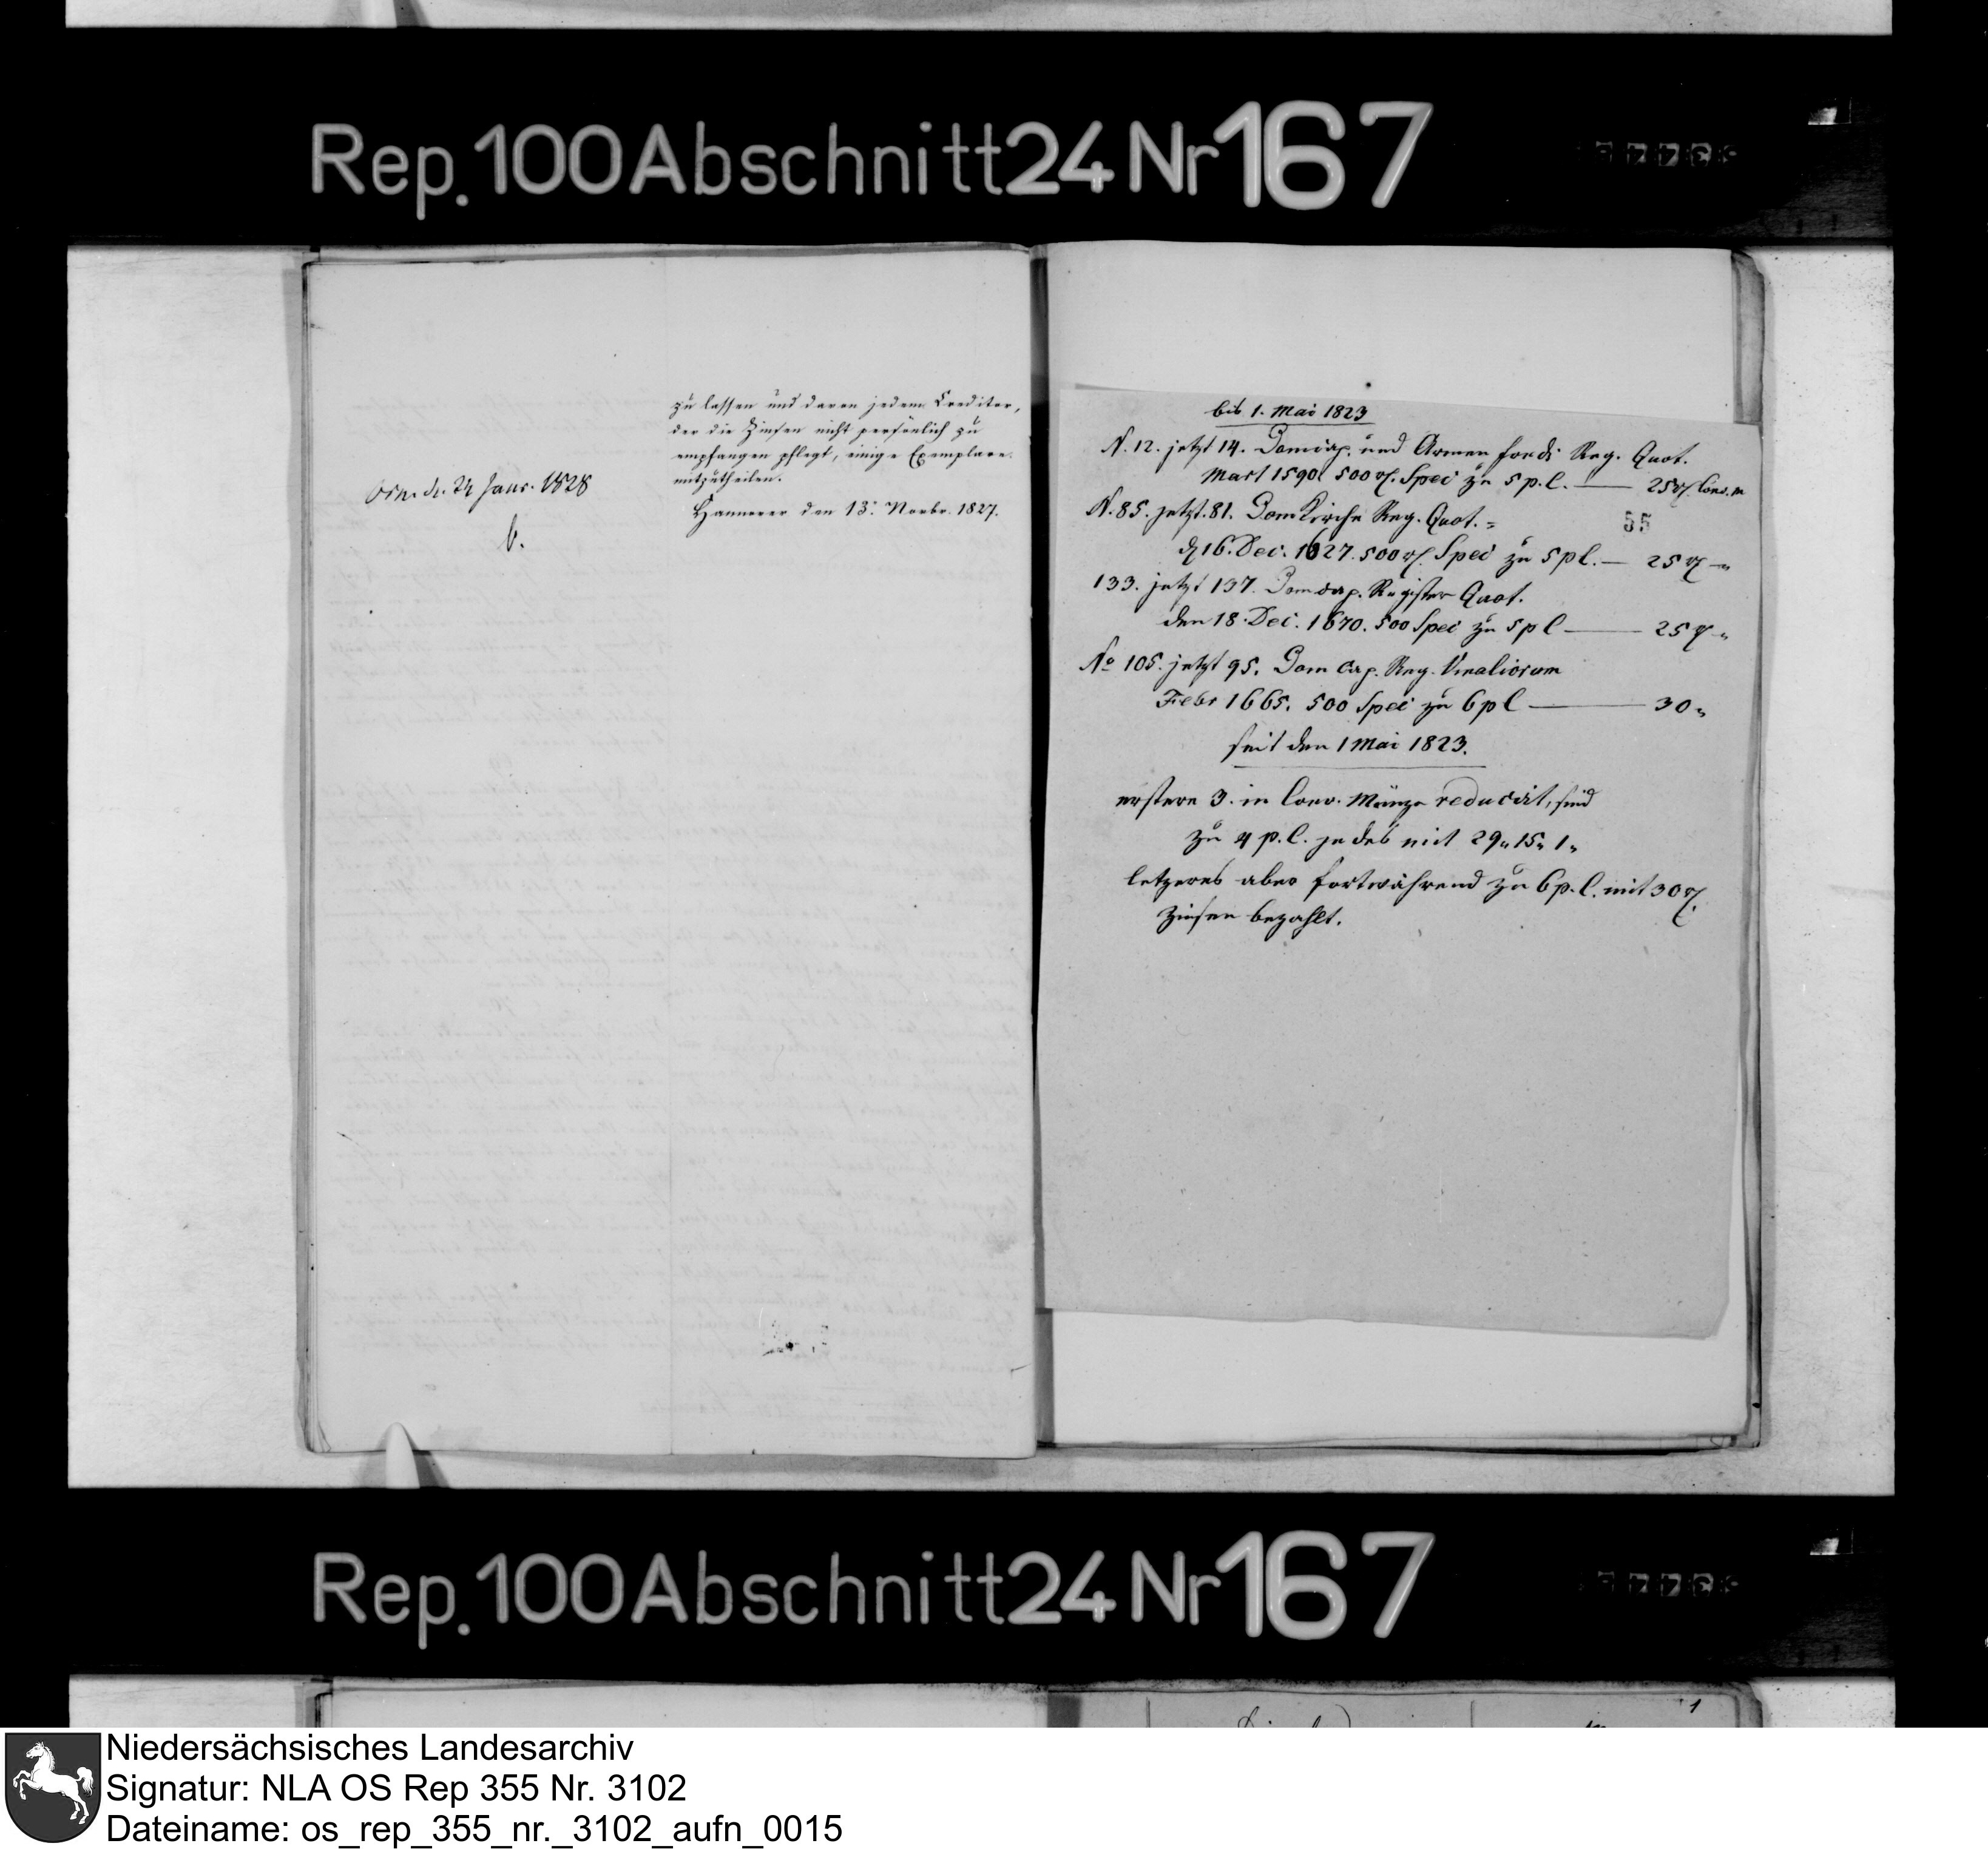 Rep. 100 Abschnitt 24 Nr 167
zu lassen und davon jedem Creditor,
der die Zinsen nicht persönlich zu
empfangen pflegt, einige Exemplare
mitzutheilen.
Hannover den 13. Novbr. 1827.
Osn. d. 24 Janr. 1828
b.
bis 1. Mai 1823
N. 12. jetzt 14. Domcap. und Armen fondi Reg. Quot.
Mart 1590 500 rt. Spec zu 5 p. C. — 25 rt. Conv. M
N. 85. jetzt. 81. DomKirche Reg. Quot.
55
d 16. Dec. 1627. 500 rt. Spec zu 5 p C. — 25 rt
133. jetzt 137. Domcap. Register Quot.
den 18. Dec. 1670. 500 Spec zu 5 p C — 25 rt
No 105. jetzt 95. Dom Cap. Reg. Vinaliorum
Febr 1665. 500 Spec zu 6 p C — 30 "
seit den 1 Mai 1823.
erstere 3. in Conv. Münze reducirt, sind
zu 4 p. C. jedes mit 29 " 15 " 1 "
letzeres aber fortwährend zu 6 p. C. mit 30 rt.
Zinsen bezahlt.
Rep. 100 Abschnitt 24 Nr 167
1
Niedersächsisches Landesarchiv
Signatur: NLA OS Rep 355 Nr. 3102
Dateiname: os_rep_355_nr._3102_aufn_0015